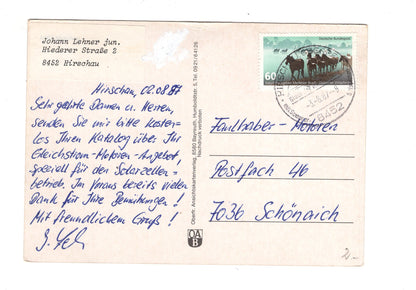 Johann Lehner jun.
Riederer Straße 2
8452 Hirschau
Hirschau, 02.08.87
Sehr geehrte Damen u. Herren,
senden Sie mir bitte kosten-
los Ihren Katalog über Ihr
Gleichstrom-Motoren-Angebot,
speziell für den Solarzellen-
betrieb. Im Voraus bereits vielen
Dank für Ihre Bemühungen!
Mit freundlichem Gruß!
Oberfr. Ansichtskartenverlag, 8580 Bayreuth, Humboldtstr. 5, Tel. 0921/64126
Nachdruck verboten
OA
B
Deutsche Bundespost
60
8452
Faulhaber-Motoren
Postfach 46
7036 Schönaich
2.-